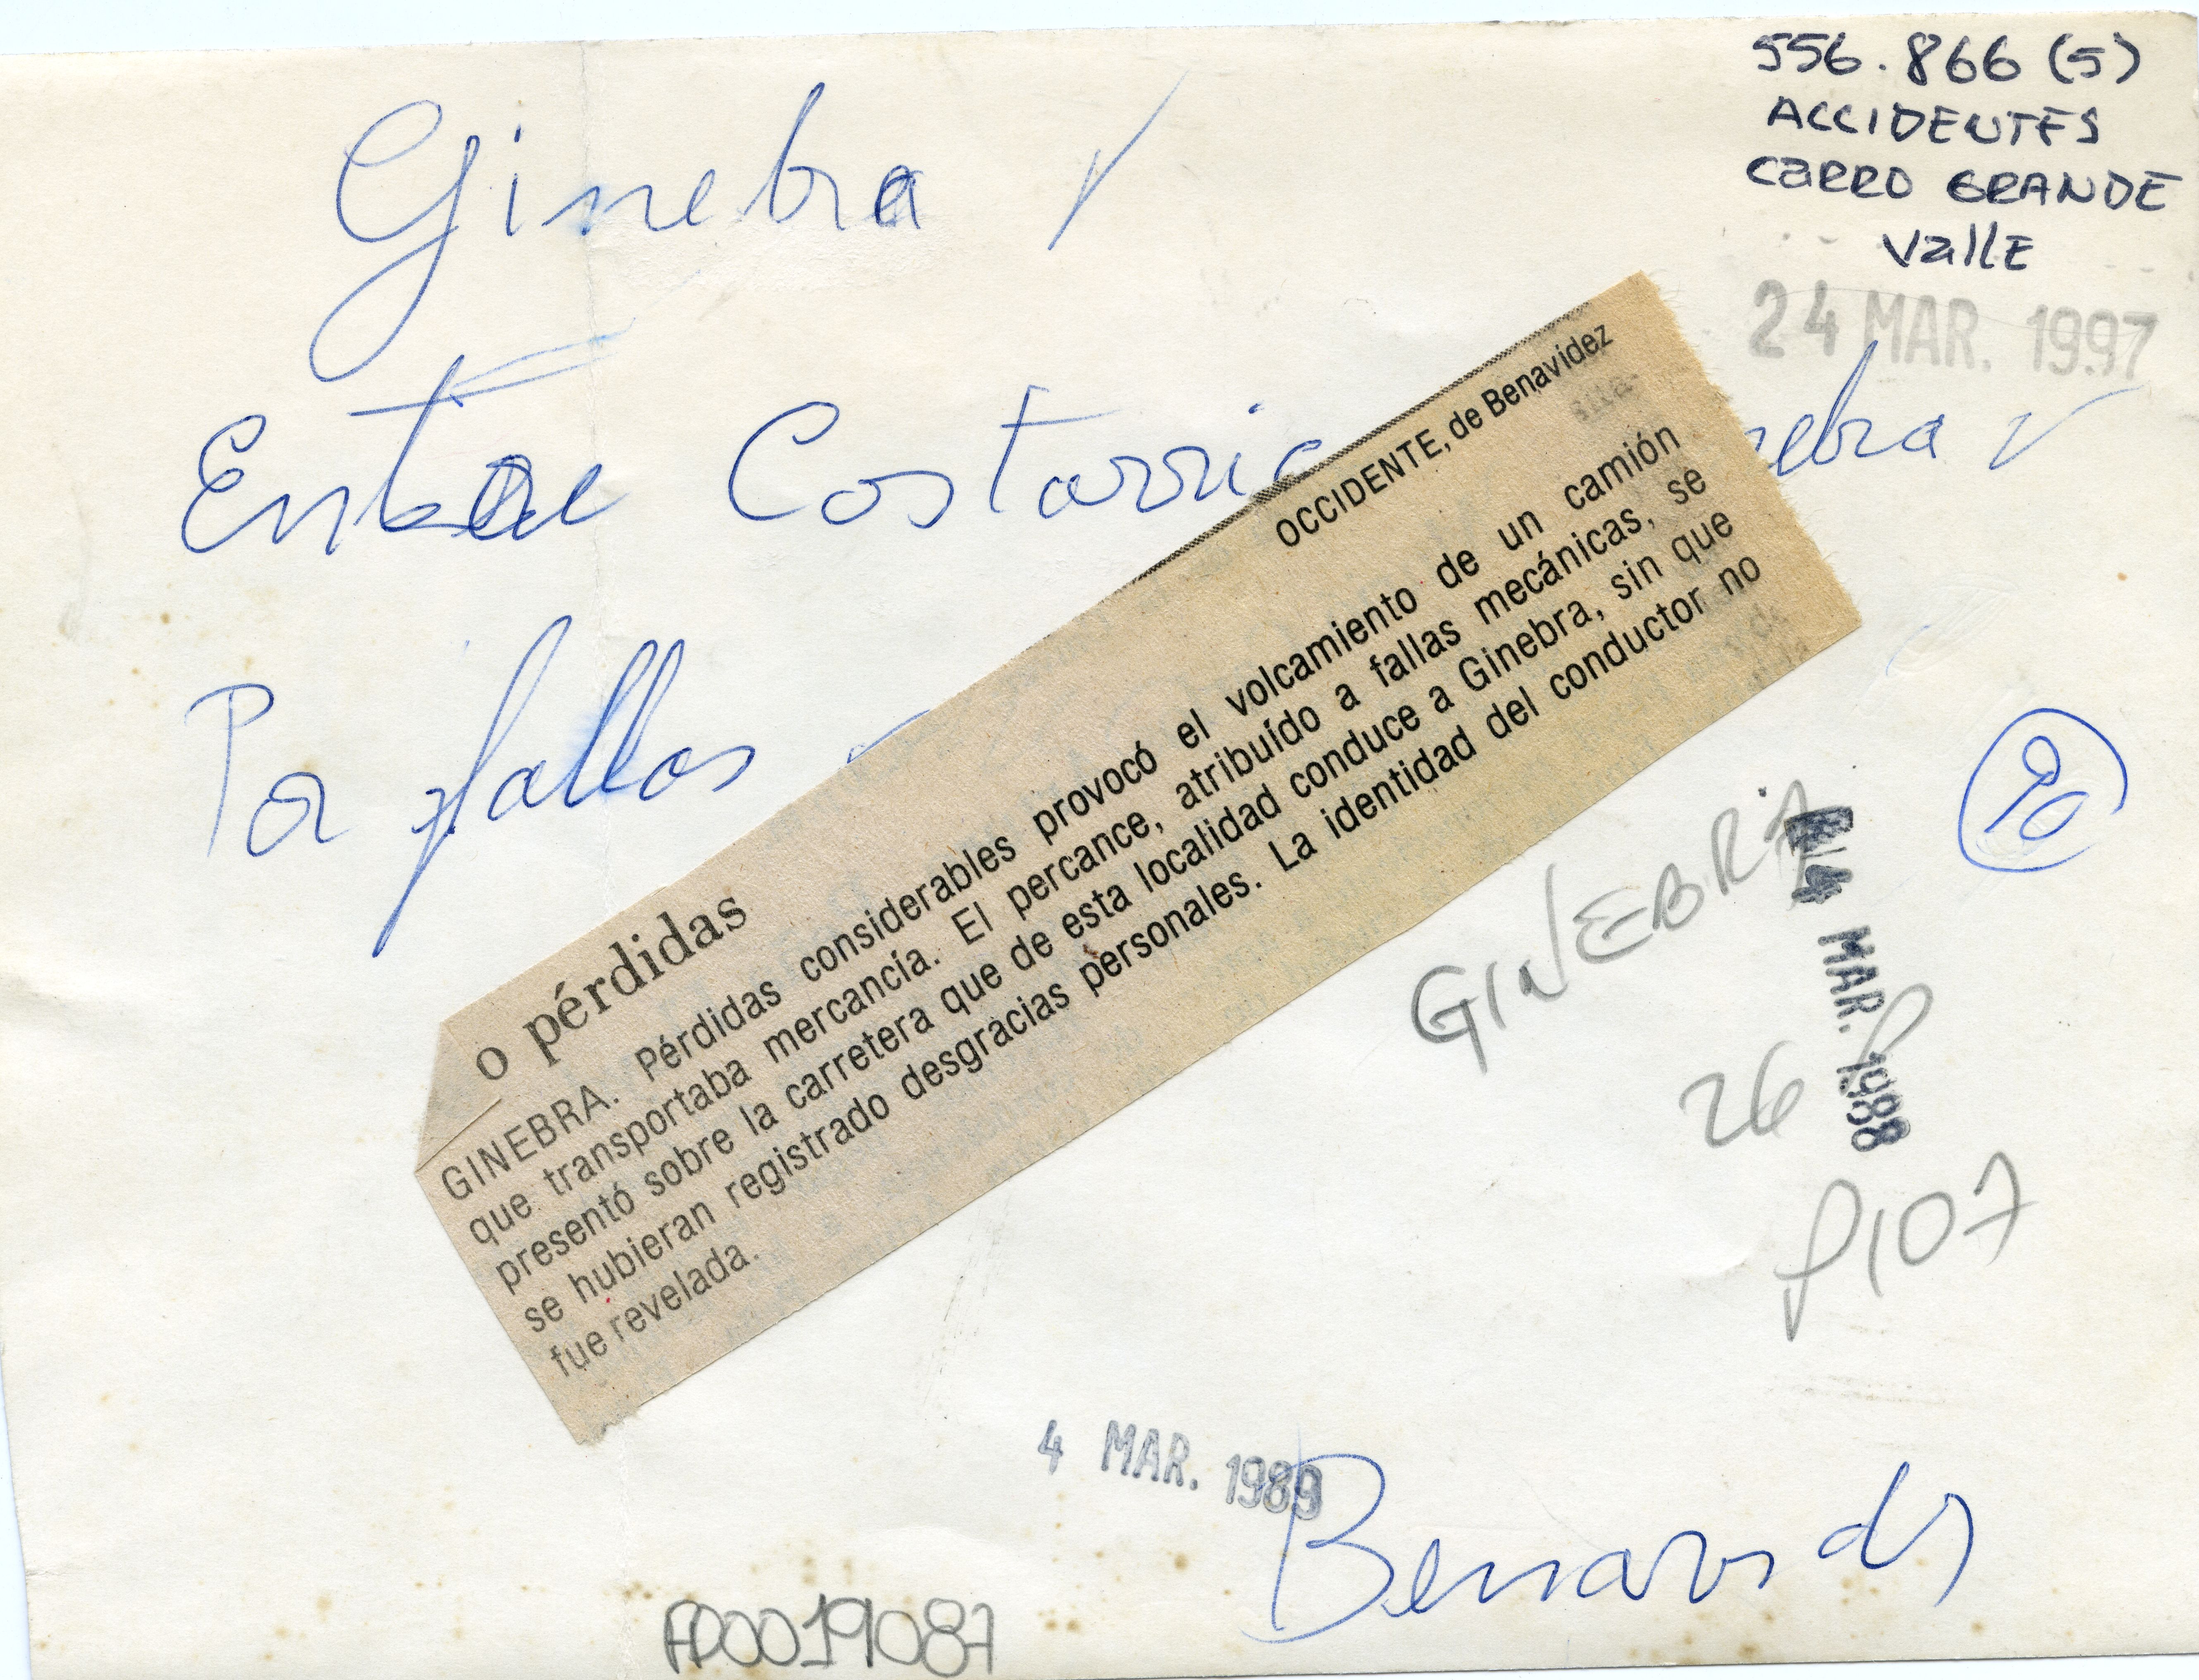 556.866 (5)
ACCIDENTES
CARRO GRANDE
Valle
24 MAR. 1997
Ginebra
Entre Costarric nebra
Por fallas
OCCIDENTE, de Benavidez
o pérdidas
GINEBRA. Pérdidas considerables provocó el volcamiento de un camión
que transportaba mercancía. El percance, atribuído a fallas mecánicas, se
presentó sobre la carretera que de esta localidad conduce a Ginebra, sin que
se hubieran registrado desgracias personales. La identidad del conductor no
fue revelada.
GINEBRA
MAR. 1988
26
P107
4 MAR. 1989
Benavides
AD0019087